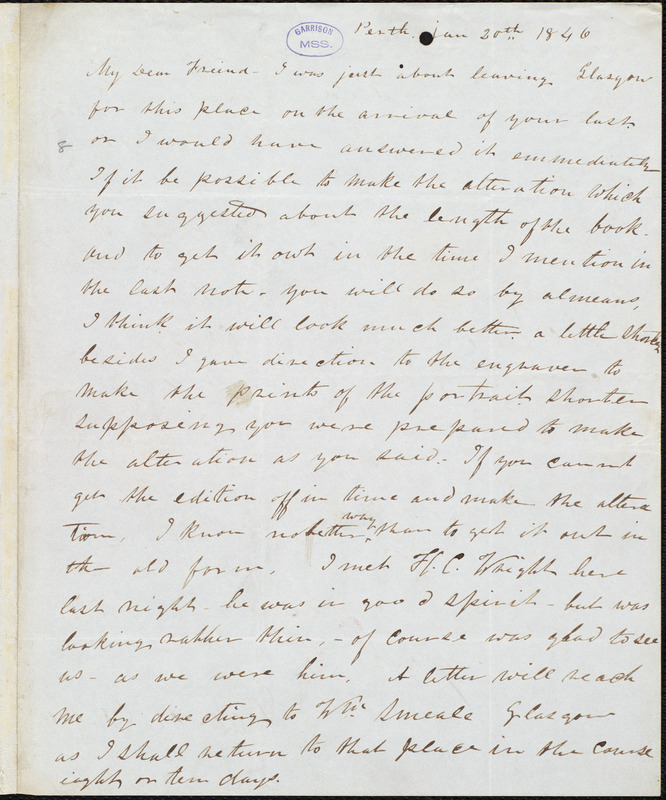 GARRISON
MSS.
Perth Jan 20th 1846
My Dear Friend - I was just about leaving Glasgow
for this place on the arrival of your last.
or I would have answered it emmediately
If it be possible to make the alteration which
you suggested about the length of the book -
and to get it out in the time I mention in
the last note - you will do so by almeans,
I think it will look much better a little shorter
besides I gave direction to the engraver to
make the prints of the portrait shorter
supposing you were prepared to make
the alteration as you said - If you cannot
get the edition off in time and make the altera
tion, I know no better way than to get it out in
the old form. I met H. C. Wright here
last night - he was in good spirit - but was
looking rubber thin, - of course was glad to see
us - as we were him. A letter will reach
me by directing to Wm Smeals Glasgow
as I shall return to that place in the course
eight or ten days.
8